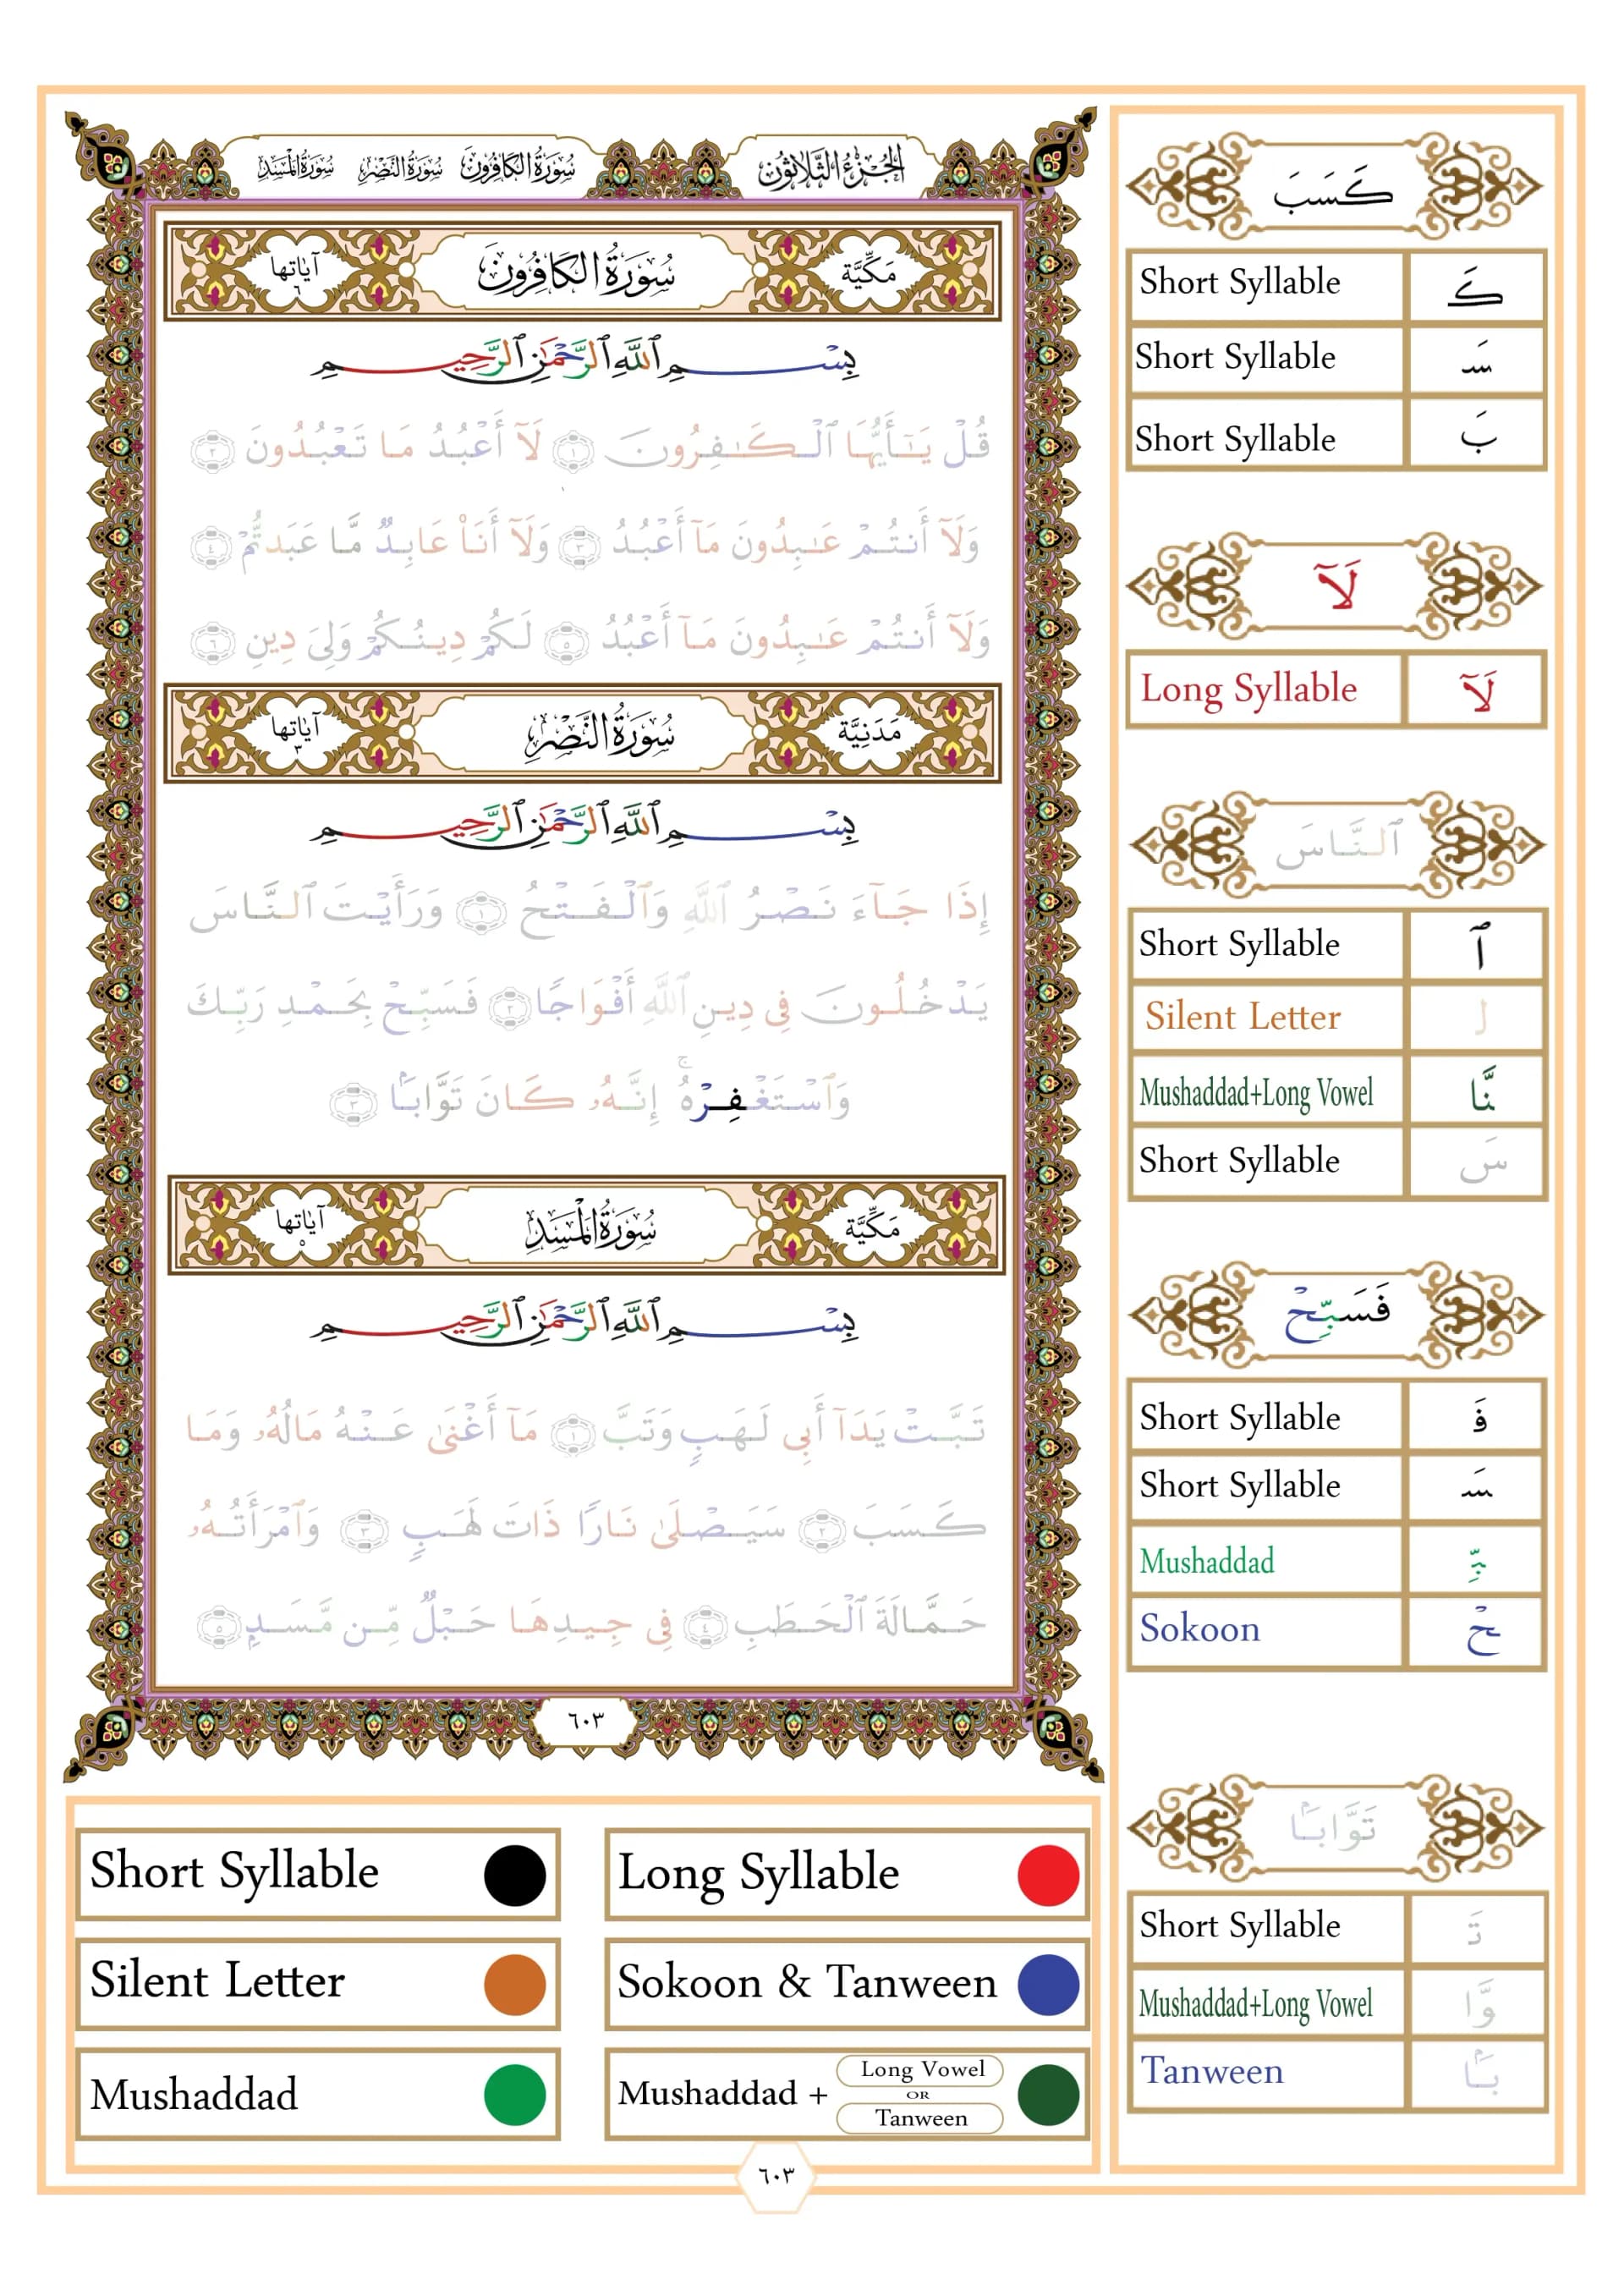 الجزء الثلاثون
سورة الكافرون سورة النصر سورة المسد
مَكِّيَّة سُورَةُ الكَافِرُونَ آياتها ٦
بِسْمِ ٱللَّهِ ٱلرَّحْمَٰنِ ٱلرَّحِيمِ
قُلْ يَٰٓأَيُّهَا ٱلْكَٰفِرُونَ ١ لَآ أَعْبُدُ مَا تَعْبُدُونَ ٢
وَلَآ أَنتُمْ عَٰبِدُونَ مَآ أَعْبُدُ ٣ وَلَآ أَنَا۠ عَابِدٌ مَّا عَبَدتُّمْ ٤
وَلَآ أَنتُمْ عَٰبِدُونَ مَآ أَعْبُدُ ٥ لَكُمْ دِينُكُمْ وَلِىَ دِينِ ٦
مَدَنِيَّة سُورَةُ النَّصْرِ آياتها ٣
بِسْمِ ٱللَّهِ ٱلرَّحْمَٰنِ ٱلرَّحِيمِ
إِذَا جَآءَ نَصْرُ ٱللَّهِ وَٱلْفَتْحُ ١ وَرَأَيْتَ ٱلنَّاسَ
يَدْخُلُونَ فِى دِينِ ٱللَّهِ أَفْوَاجًا ٢ فَسَبِّحْ بِحَمْدِ رَبِّكَ
وَٱسْتَغْفِرْهُ ۚ إِنَّهُۥ كَانَ تَوَّابًۢا ٣
مَكِّيَّة سُورَةُ المَسَدِ آياتها ٥
بِسْمِ ٱللَّهِ ٱلرَّحْمَٰنِ ٱلرَّحِيمِ
تَبَّتْ يَدَآ أَبِى لَهَبٍ وَتَبَّ ١ مَآ أَغْنَىٰ عَنْهُ مَالُهُۥ وَمَا
كَسَبَ ٢ سَيَصْلَىٰ نَارًا ذَاتَ لَهَبٍ ٣ وَٱمْرَأَتُهُۥ
حَمَّالَةَ ٱلْحَطَبِ ٤ فِى جِيدِهَا حَبْلٌ مِّن مَّسَدٍۭ ٥
٦٠٣
كَسَبَ
Short Syllable كَ
Short Syllable سَ
Short Syllable بَ
لَآ
Long Syllable لَآ
ٱلنَّاسَ
Short Syllable ٱ
Silent Letter ل
Mushaddad+Long Vowel نَّا
Short Syllable سَ
فَسَبِّحْ
Short Syllable فَ
Short Syllable سَ
Mushaddad بِّ
Sokoon حْ
تَوَّابًۢا
Short Syllable تَ
Mushaddad+Long Vowel وَّا
Tanween بًۢا
Short Syllable Long Syllable
Silent Letter Sokoon & Tanween
Mushaddad Mushaddad + Long Vowel OR Tanween
٦٠٣